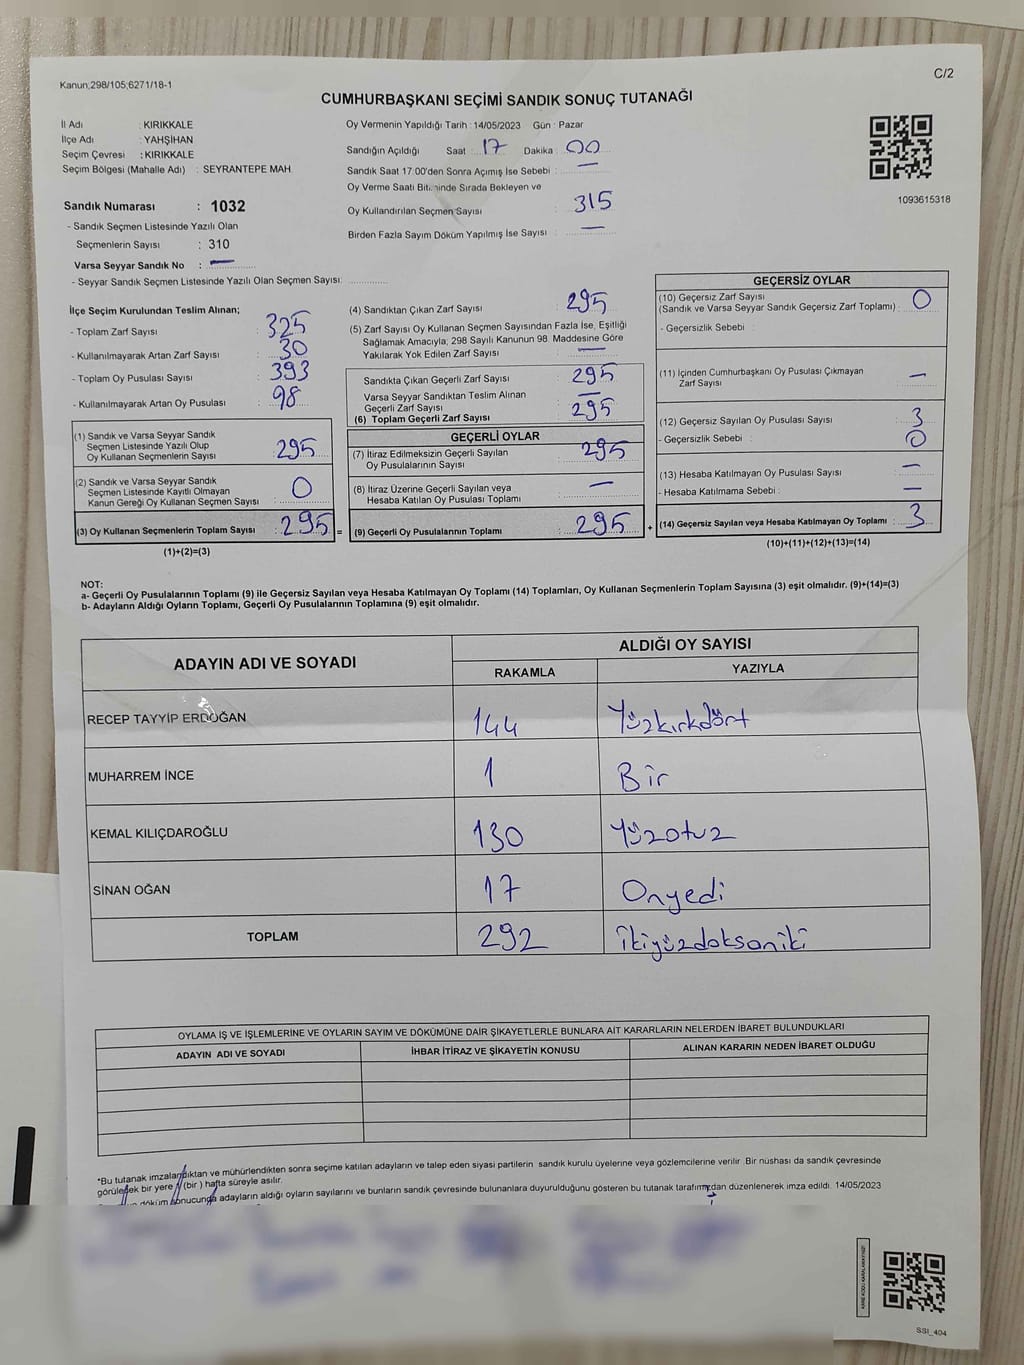 Kanun;298/105;6271/18-1
C/2
CUMHURBAŞKANI SEÇİMİ SANDIK SONUÇ TUTANAĞI
İl Adı : KIRIKKALE
İlçe Adı : YAHŞİHAN
Seçim Çevresi : KIRIKKALE
Seçim Bölgesi (Mahalle Adı) : SEYRANTEPE MAH
Oy Vermenin Yapıldığı Tarih : 14/05/2023 Gün : Pazar
Sandığın Açıldığı Saat : 17 Dakika : 00
Sandık Saat 17:00'den Sonra Açımış İse Sebebi : —
Oy Verme Saati Bitiminde Sırada Bekleyen ve
Oy Kullandırılan Seçmen Sayısı : 315
Birden Fazla Sayım Döküm Yapılmış İse Sayısı : —
1093615318
Sandık Numarası : 1032
- Sandık Seçmen Listesinde Yazılı Olan
Seçmenlerin Sayısı : 310
Varsa Seyyar Sandık No : —
- Seyyar Sandık Seçmen Listesinde Yazılı Olan Seçmen Sayısı:
İlçe Seçim Kurulundan Teslim Alınan;
- Toplam Zarf Sayısı : 325
- Kullanılmayarak Artan Zarf Sayısı : 30
- Toplam Oy Pusulası Sayısı : 393
- Kullanılmayarak Artan Oy Pusulası : 98
(1) Sandık ve Varsa Seyyar Sandık
Seçmen Listesinde Yazılı Olup
Oy Kullanan Seçmenlerin Sayısı : 295
(2) Sandık ve Varsa Seyyar Sandık
Seçmen Listesinde Kayıtlı Olmayan
Kanun Gereği Oy Kullanan Seçmen Sayısı : 0
(3) Oy Kullanan Seçmenlerin Toplam Sayısı : 295 =
(1)+(2)=(3)
(4) Sandıktan Çıkan Zarf Sayısı : 295
(5) Zarf Sayısı Oy Kullanan Seçmen Sayısından Fazla İse, Eşitliği
Sağlamak Amacıyla; 298 Sayılı Kanunun 98. Maddesine Göre
Yakılarak Yok Edilen Zarf Sayısı : —
Sandıkta Çıkan Geçerli Zarf Sayısı : 295
Varsa Seyyar Sandıktan Teslim Alınan
Geçerli Zarf Sayısı : —
(6) Toplam Geçerli Zarf Sayısı : 295
GEÇERLİ OYLAR
(7) İtiraz Edilmeksizin Geçerli Sayılan
Oy Pusulalarının Sayısı : 295
(8) İtiraz Üzerine Geçerli Sayılan veya
Hesaba Katılan Oy Pusulası Toplamı : —
(9) Geçerli Oy Pusulalarının Toplamı : 295 +
GEÇERSİZ OYLAR
(10) Geçersiz Zarf Sayısı
(Sandık ve Varsa Seyyar Sandık Geçersiz Zarf Toplamı) : 0
- Geçersizlik Sebebi :
(11) İçinden Cumhurbaşkanı Oy Pusulası Çıkmayan
Zarf Sayısı : —
(12) Geçersiz Sayılan Oy Pusulası Sayısı : 3
- Geçersizlik Sebebi : 0
(13) Hesaba Katılmayan Oy Pusulası Sayısı : —
- Hesaba Katılmama Sebebi : —
(14) Geçersiz Sayılan veya Hesaba Katılmayan Oy Toplamı : 3
(10)+(11)+(12)+(13)=(14)
NOT:
a- Geçerli Oy Pusulalarının Toplamı (9) ile Geçersiz Sayılan veya Hesaba Katılmayan Oy Toplamı (14) Toplamları, Oy Kullanan Seçmenlerin Toplam Sayısına (3) eşit olmalıdır. (9)+(14)=(3)
b- Adayların Aldığı Oyların Toplamı, Geçerli Oy Pusulalarının Toplamına (9) eşit olmalıdır.
ADAYIN ADI VE SOYADI
ALDIĞI OY SAYISI
RAKAMLA YAZIYLA
RECEP TAYYİP ERDOĞAN 144 Yüzkırkdört
MUHARREM İNCE 1 Bir
KEMAL KILIÇDAROĞLU 130 Yüzotuz
SİNAN OĞAN 17 Onyedi
TOPLAM 292 İkiyüzdoksaniki
OYLAMA İŞ VE İŞLEMLERİNE VE OYLARIN SAYIM VE DÖKÜMÜNE DAİR ŞİKAYETLERLE BUNLARA AİT KARARLARIN NELERDEN İBARET BULUNDUKLARI
ADAYIN ADI VE SOYADI İHBAR İTİRAZ VE ŞİKAYETİN KONUSU ALINAN KARARIN NEDEN İBARET OLDUĞU
*Bu tutanak imzalandıktan ve mühürlendikten sonra seçime katılan adayların ve talep eden siyasi partilerin sandık kurulu üyelerine veya gözlemcilerine verilir. Bir nüshası da sandık çevresinde
görülecek bir yere 1 (bir ) hafta süreyle asılır.
döküm sonucunda adayların aldığı oyların sayılarını ve bunların sandık çevresinde bulunanlara duyurulduğunu gösteren bu tutanak tarafımızdan düzenlenerek imza edildi. 14/05/2023
SSI_404